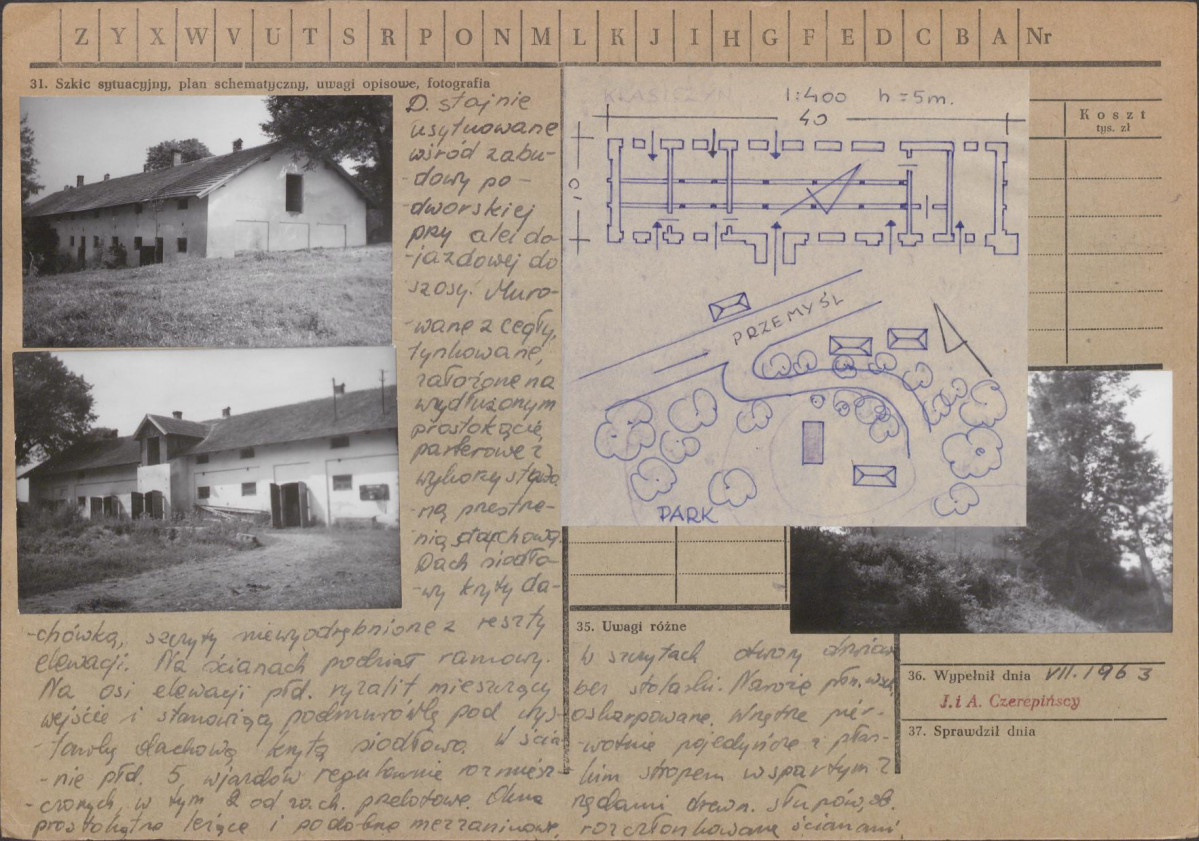 Z Y X W V U T S R P O N M L K J I H G F E D C B A Nr
31. Szkic sytuacyjny, plan schematyczny, uwagi opisowe, fotografia
D. stajnie
usytuowane
wśród zabu-
-dowy po-
-dworskiej
przy alei do-
-jazdowej do
szosy. Muro-
-wane z cegły,
tynkowane,
założone na
wydłużonym
prostokącie,
parterowe z
wysoką
-ną przestrze-
-nią strychową.
Dach siodło-
-wy kryty da-
-chówką, szczyty niewyodrębnione z reszty
elewacji. Na ścianach podział ramowy.
Na osi elewacji płd. ryzalit mieszczący
wejście i stanowiący podmurówkę pod wys-
-tawkę dachową krytą siodłowo. W ścia-
-nie płd. 5 wjazdów regularnie rozmiesz-
-czonych, w tym 2 od zach. przelotowe. Okna
prostokątne leżące i podobne mezzaninowe,
KLASICZYN
1:400 h=5m.
40
10
PRZEMYŚL
PARK
Koszt
tys. zł
35. Uwagi różne
W szczytach otwory drzwiow
bez stolarki. Naroże płn. wsch.
oskarpowane. Wnętrze pier-
-wotnie pojedyńcze z płas-
-kim stropem wspartym 2
rzędami drewn. słupów, ob.
rozczłonkowane ścianami
36. Wypełnił dnia VII.1963
J. i A. Czerepińscy
37. Sprawdził dnia